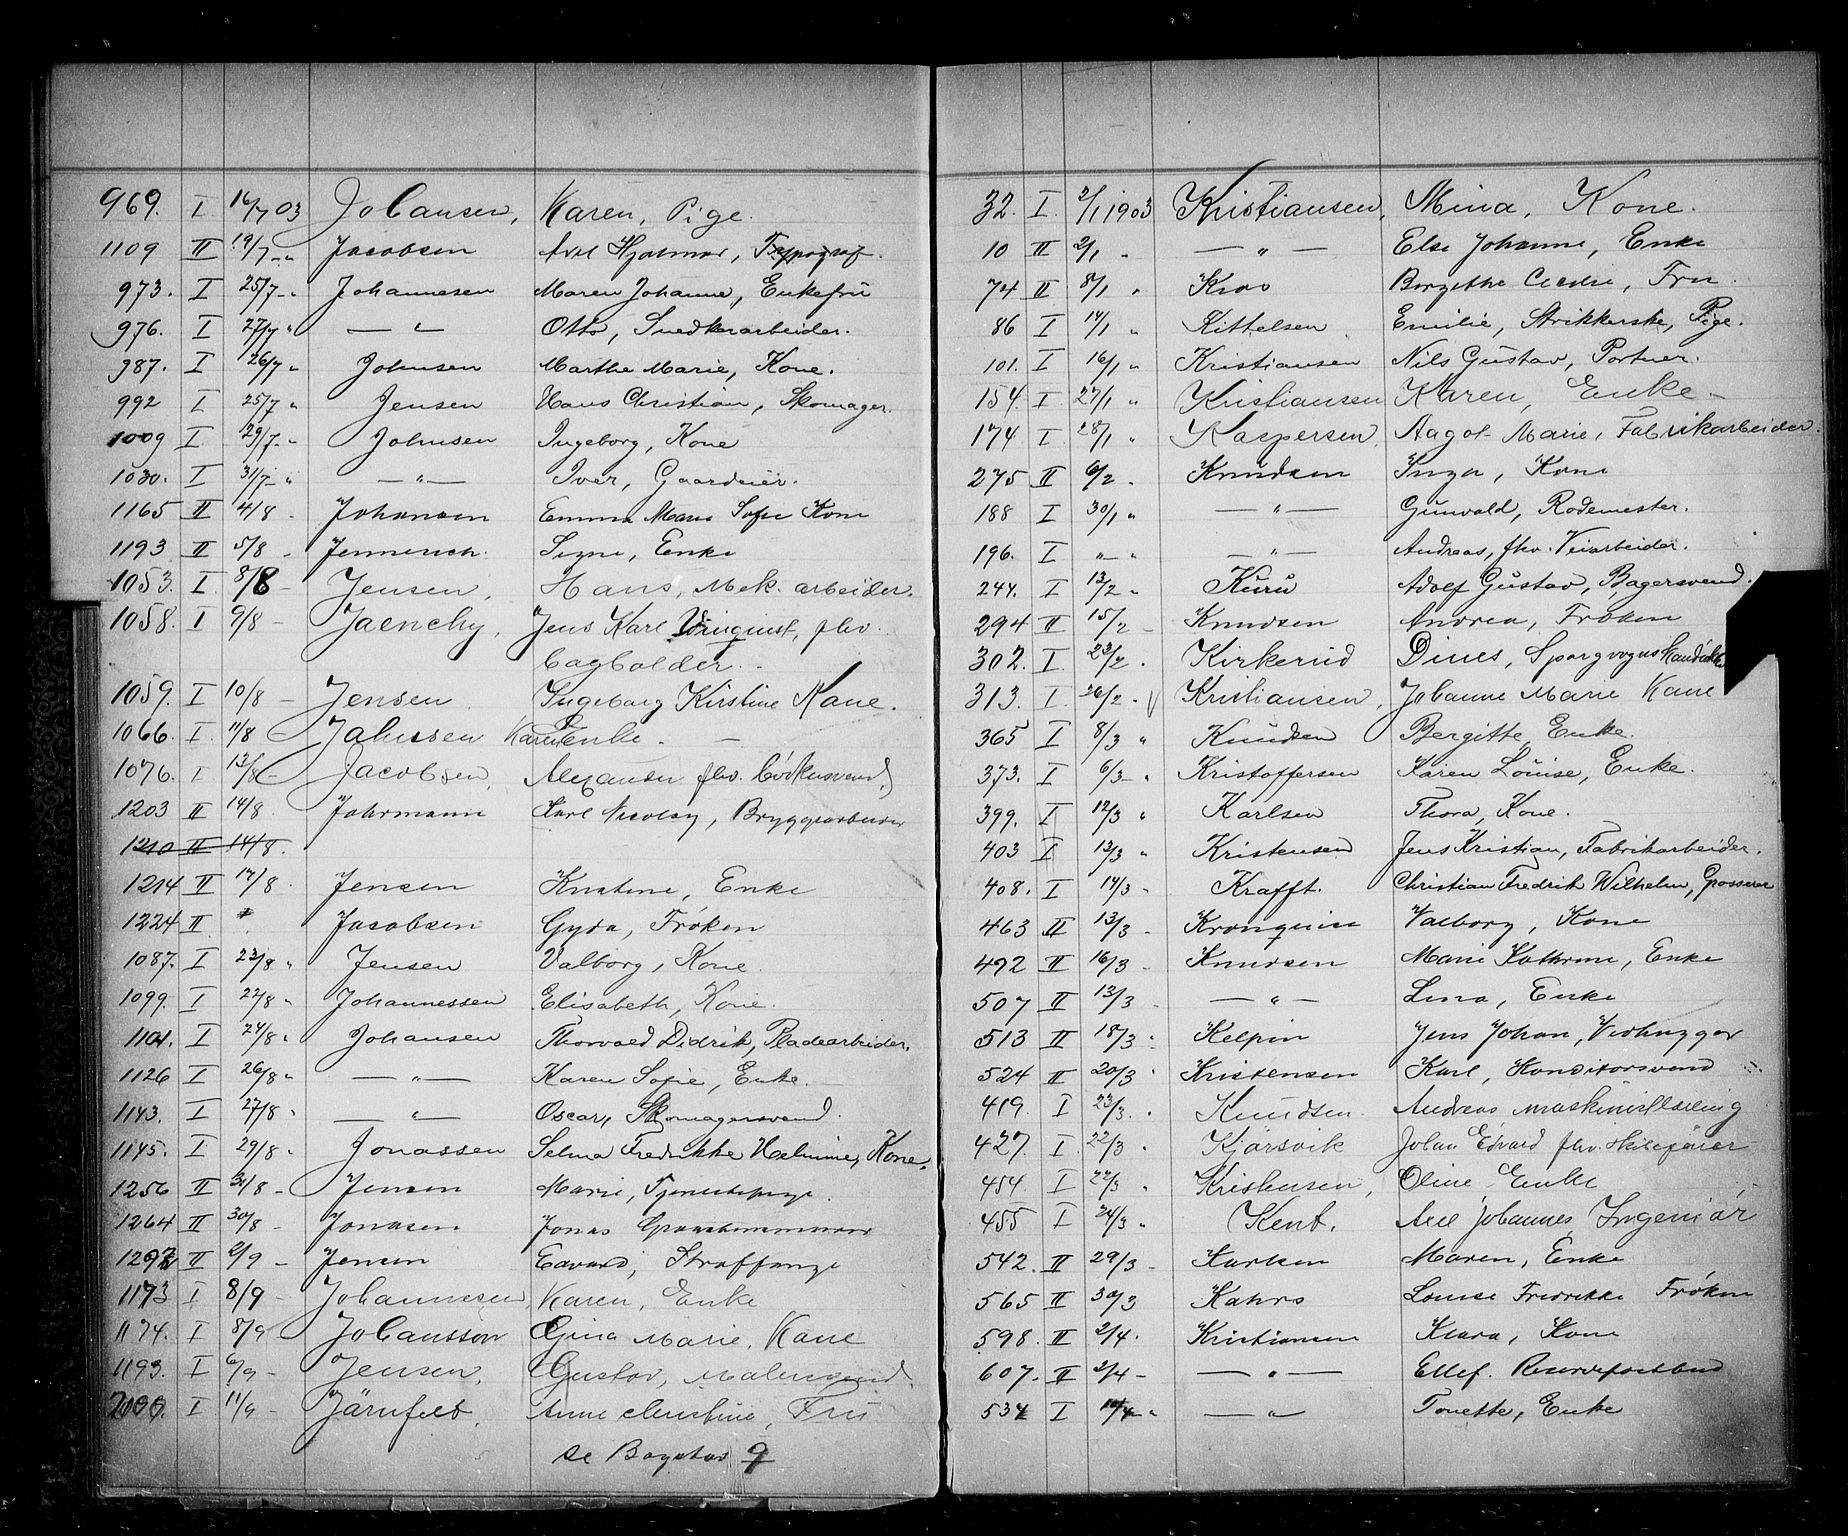 969. I 16/7 03 Johansen, Karen, Pige.
1109 II 19/7 -" Jacobsen Axel Hjalmar, Typograf.
973. I 25/7 -" Johannesen Maren Johanne, Enkefru
976. I 27/7 " — " — Otto, Snedkerarbeider.
987. I 26/7 " Johnsen Marthe Marie, Kone.
992 I 25/7 " Jensen Hans Christian, Skomager.
1009 I 29/7 -" Johnsen Ingeborg, Kone
1030. I 31/7 -" — " — Iver, Gaardeier.
1165 II 4/8 - Johansen Emma Marie Sofie Kone
1193 II 5/8 - Jennerich. Signe, Enke
1053. I 8/8 - Jensen, Hans, Mek. arbeider.
1058. I 9/8 - Jaenchy, Jens Karl, fhv.
bagholder.
1059. I 10/8 - Jensen Ingeborg Kirstine Kone.
1066. I 11/8 Johnsen Karen Enke. —
1076. I 13/8 - Jacobsen, Alexander fhv.
1203 II 14/8 Johrmann Karl Nicolay, Bryggearbeider
1210 II 14/8.
1214 II 17/8. Jensen Kristine, Enke
1224 II " Jacobsen Gyda, Frøken
1087. I 23/8 " Jensen Valborg, Kone.
1099. I 22/8 " Johannessen Elisabeth, Kone.
1101. I 24/8 " Johansen Thorvald Didrik, Pladearbeider.
1126 I 26/8 " — " — Karen Sofie, Enke.
1143. I 27/8 " — " — Oscar, Skomagersvend.
1145. I 29/8 " Jonassen Selma Fredrikke Helmine, Kone.
1256 II 31/8 - Jensen Marie, Tjenestepige.
1264 II 30/8 - Jonasen Jonas
1297 II 2/9 - Jensen Edvard, Straffange
1173 I 8/9 - Johannesen, Karen, Enke
1174. I 8/9 - Johansson Gina Marie, Kone
1193. I 6/9 - Jensen, Gustav, Malersvend.
I 11/9 - Järnfelt, Anne Christine, Fru
se Bogstav 9
32. I 2/1 1903 Kristiansen, Mina, Kone.
10 II 2/1 " — " — Else Johanne, Enke
74 II 8/1 " Birgithe Cecilie, Fru.
86 I 14/1 " Kittelsen Emilie, Strikkerske, Pige.
101. I 16/1 " Kristiansen Nils Gustav, Portner.
154. I 27/1 " Kristiansen Karen, Enke -
174 I 28/1 " Kaspersen, Aagot Marie, Fabrikarbeider.
275 II 6/2 - Knudsen Inga, Kone
188 I 30/1 " — " — Gunvald, Rodemester.
196. I " " — " — Andreas, fhv. Veiarbeider.
244. I 13/2 " Kuru Adolf Gustav, Bagersvend.
294 II 15/2 - Knudsen Andrea, Frøken
302. I 23/2 . Kirkerud Dines, Sporvogns
313. I 26/2 . Kristiansen, Johanne Marie Kone
365 I 8/3 " Knudsen Bergitte, Enke.
373. I 6/3 -" Kristoffersen Karen Louise, Enke.
399. I 12/3 " Karlsen Thora, Kone.
403 I 13/3 " Kristensen Jens Kristian, Fabrikarbeider.
408. I 14/3 - Krafft. Christian Fredrik Wilhelm, Grosserer
463 II 13/3 - Kronquist Valborg, Kone
492 II 16/3 - Knudsen Marie Kathrine, Enke
507 II 13/3 - — " — Lina, Enke
513 II 18/3 - Kelpin Jens Johan, Vedhugger
524 II 20/3 - Kristensen Karl, Konditorsvend
419. I 23/3 . Knudsen Andreas
427. I 22/3 " Kjørsvik Johan Edvard fhv.
454. I 22/3 " Kristensen, Oline Enke
455 I 24/3 " Kent. Axel Johannes Ingeniør
542. II 29/3 - Karlsen Maren, Enke
565 II 30/3 Kahrs Louise Fredrikke Frøken
598. II 2/4. Kristiansen Klara, Kone
607. II 2/4 - — " — Ellef. Reservepostbud
534 I 10/4 " — " — Tonette, Enke